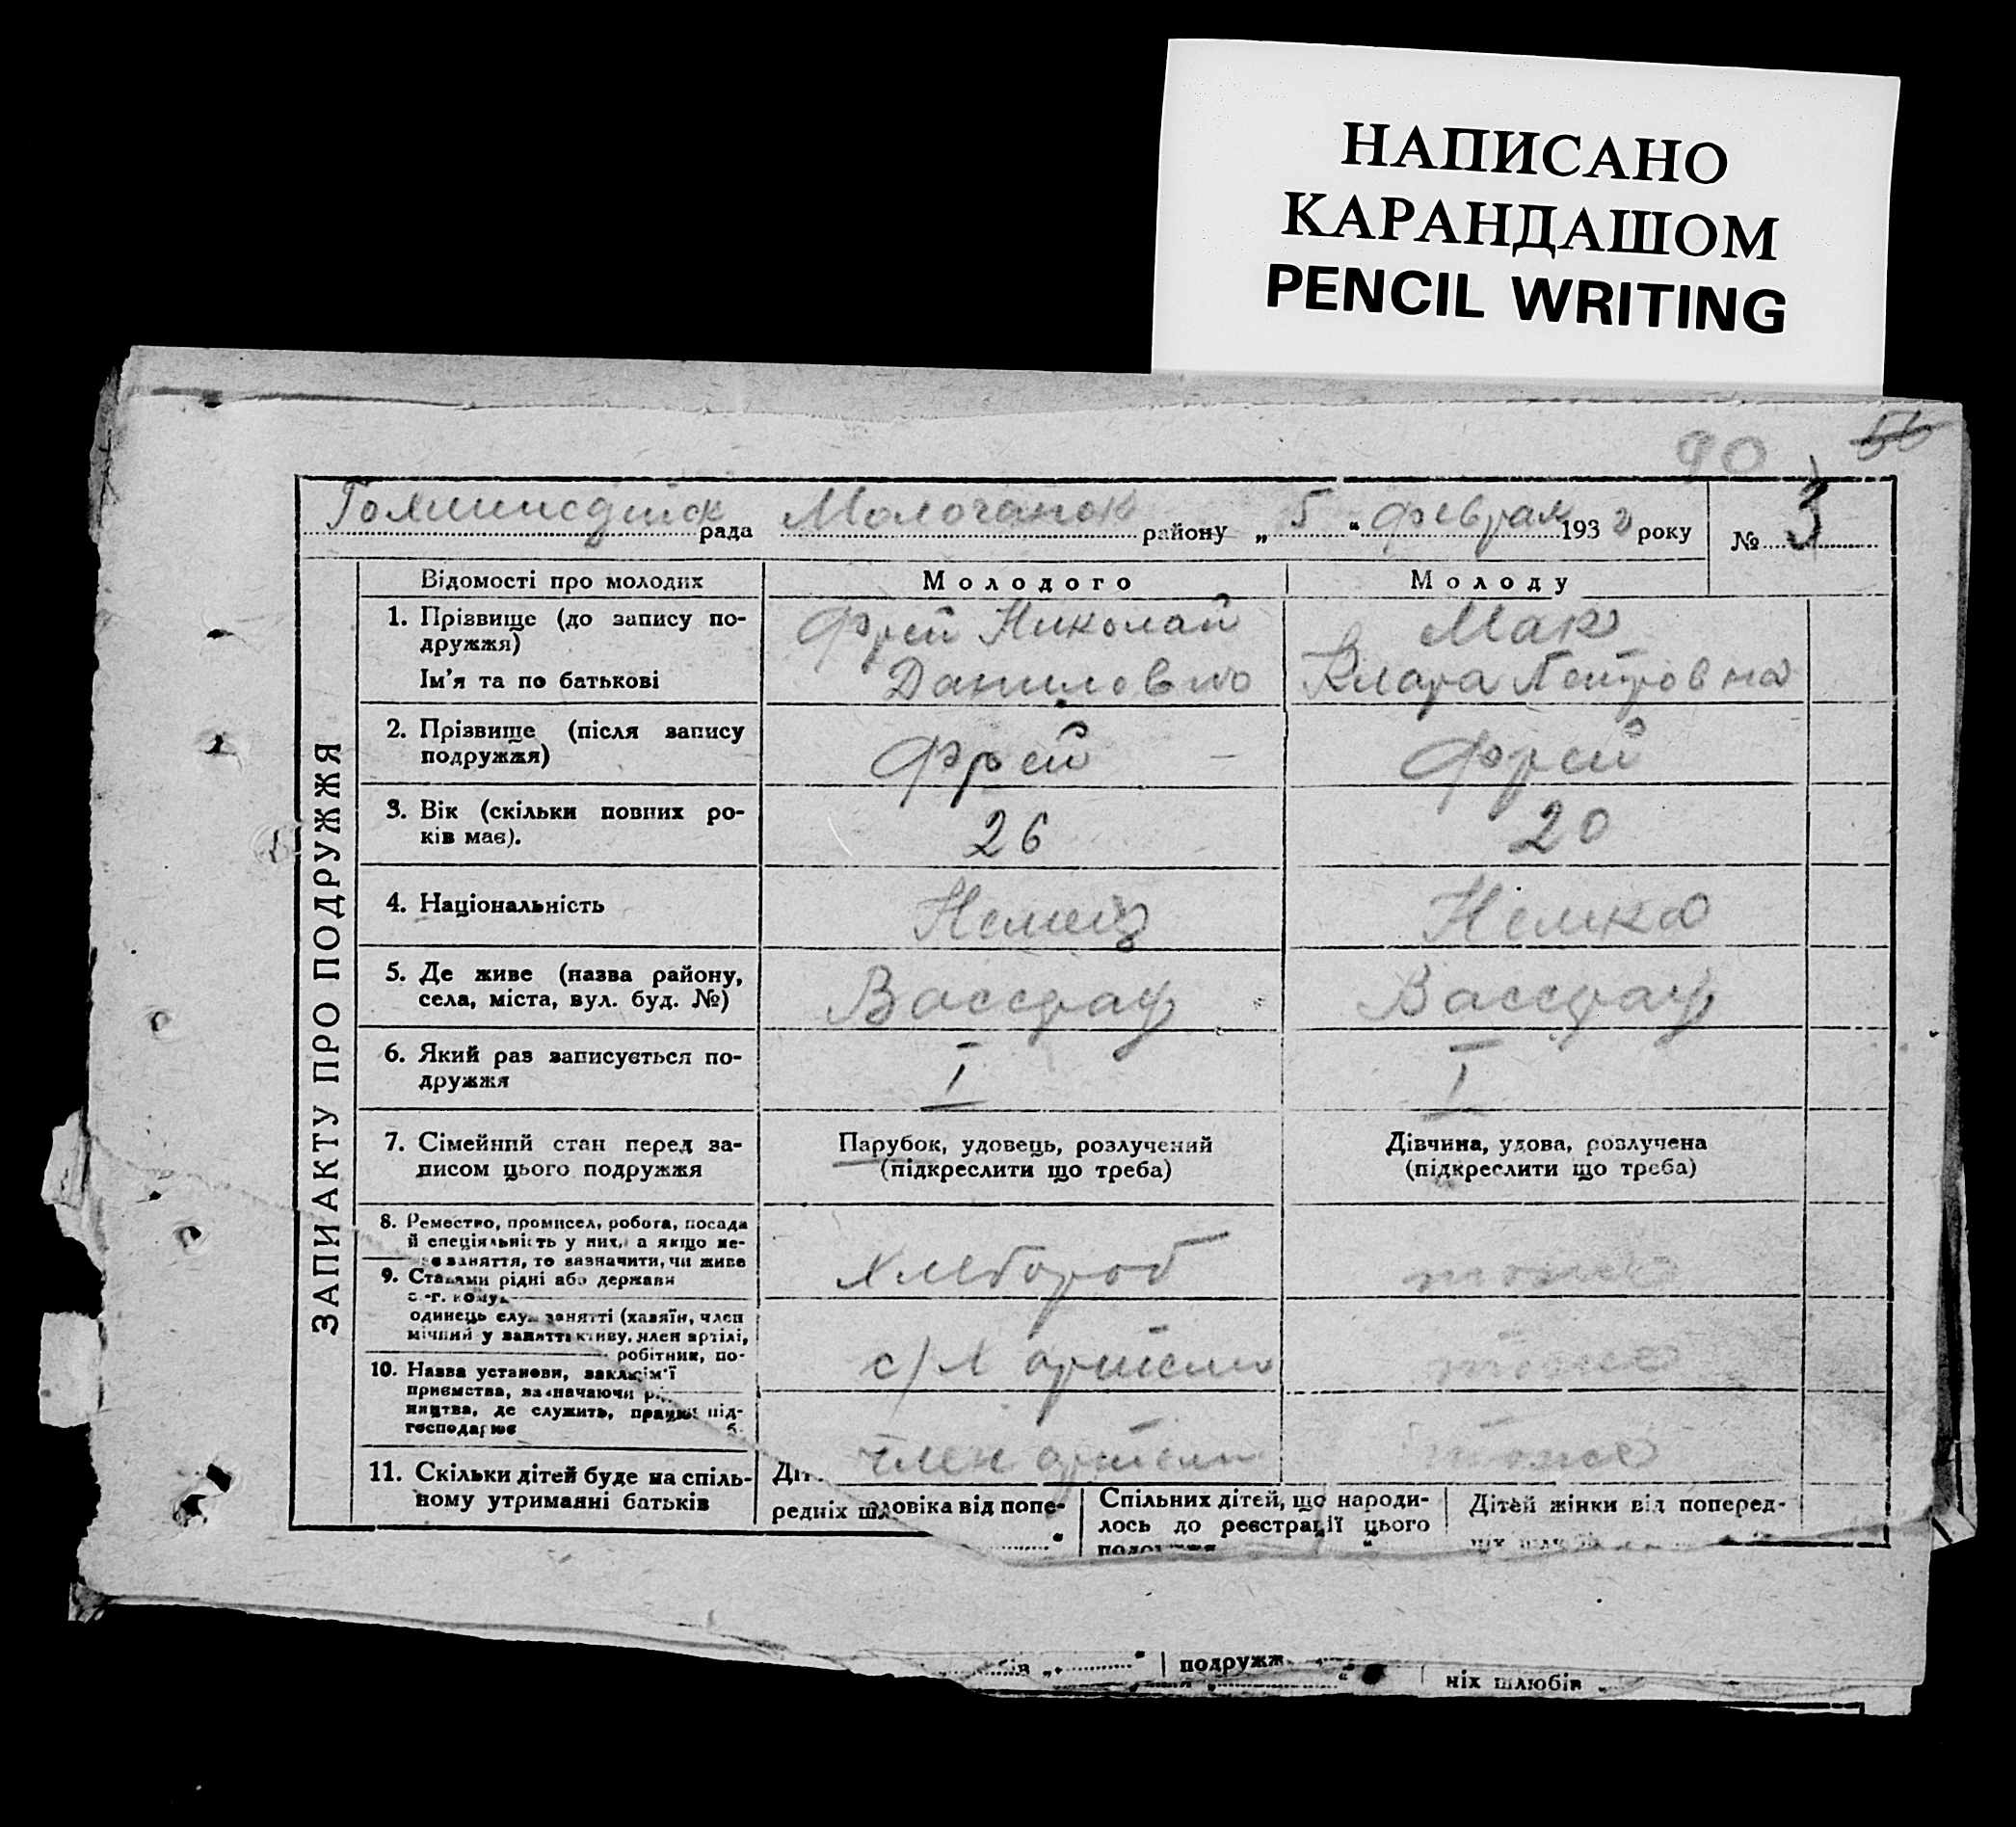 НАПИСАНО
КАРАНДАШОМ
PENCIL WRITING
90 56
рада Молочанск району „ 5 “ феврал 1932 року № 3
ЗАПИ АКТУ ПРО ПОДРУЖЖЯ
Відомості про молодих Молодого Молоду
1. Прізвище (до запису по-
дружжя)
Ім'я та по батькові
Фрей Николай
Данилович
Мак
Клара Петровна
2. Прізвище (після запису
подружжя)
Фрей –
Фрей
3. Вік (скільки повних ро-
ків має).
26
20
4. Національність
Немец
Немка
5. Де живе (назва району,
села, міста, вул. буд. №)
6. Який раз записується по-
дружжя
I
I
7. Сімейний стан перед за-
писом цього подружжя
Парубок, удовець, розлучений
(підкреслити що треба)
Дівчина, удова, розлучена
(підкреслити що треба)
8. Ремество, промисел, робота, посада
й спеціяльність у них, а якщо не-
заняття, то зазначити, чи живе
Хлебороб
тоже
9. Ста
ами рідні або держави
с.-г. кому
одинець слу занятті (хазяїн, член
мічний у занятт ктиву, член артілі,
робітник, по-
с/х артели
тоже
10. Назва установи, закла сім'ї
приємства, зазначаючи р
ництва, де служить, працює під-
господарює
член артели
тоже
11. Скільки дітей буде на спіль-
ному утриманні батьків
Діт
редніх шл ловіка від попе-
Спільних дітей, що народи-
лось до реєстрації цього
подружжя
Дітей жінки від поперед-
ніх шлюбів
ів „ “ подружж
ніх шлюбів „